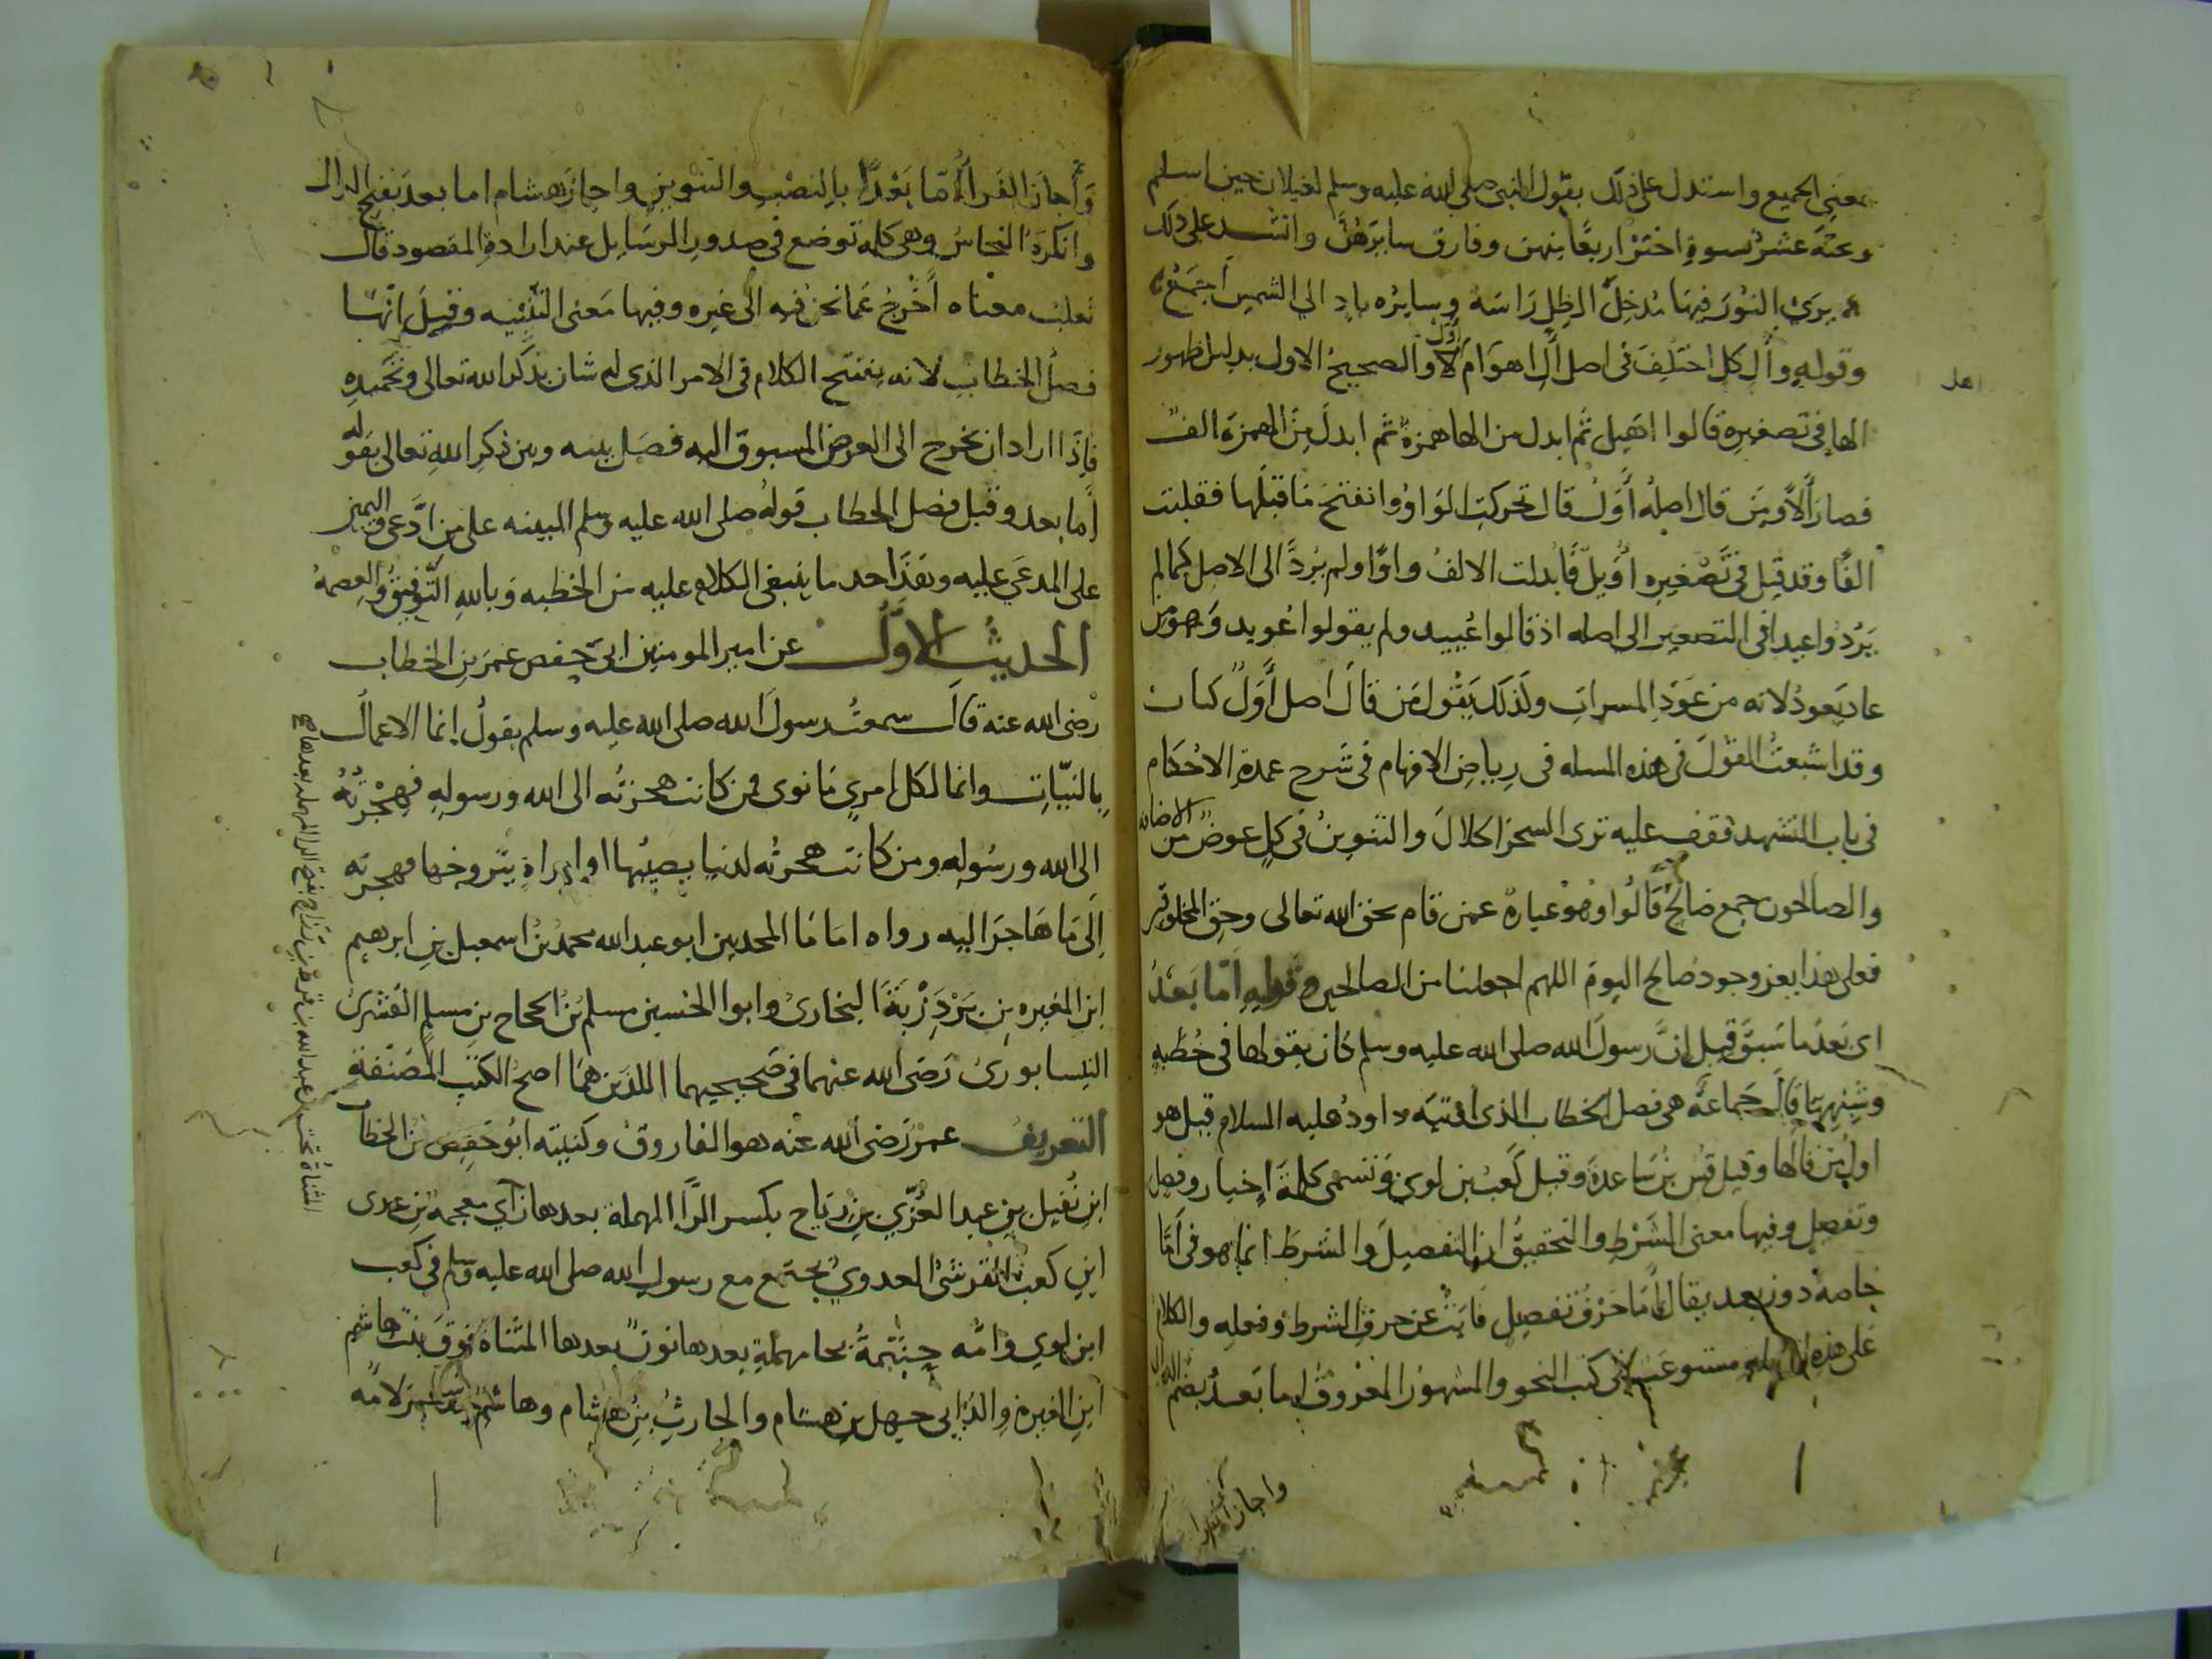 بمعنى الجميع واستدل على ذلك بقول النبي صلى الله عليه وسلم لغيلان حين اسلم
وعنده عشر نسوة اختر اربعًا منهن وفارق سايرهن وانشد على ذلك
يرى الثور فيها مدخل الظل راسه وسايره باد الى الشمس اجمع
وقوله وآل كل اختلف في اصل آل اهو اهل ام اول والصحيح الاول بدليل ظهور
الها في تصغيره قالوا اهيل ثم ابدل من الها همزة ثم ابدل من الهمزة الف
فصار آلا ومن قال اصله أول قال تحركت الواو وانفتح ما قبلها فقلبت
الفًا وقد قيل في تصغيره أويل فابدلت الالف واوًا ولم يرد الى الاصل كما لم
يردوا عيدا في التصغير الى اصله اذ قالوا عييد ولم يقولوا عويد وهو من
عاد يعود لانه من عود المسرات ولذلك يقول من قال اصل أول كان
وقد اشبعت القول في هذه المسله في رياض الافهام في شرح عمدة الاحكام
في باب التشهد فقف عليه ترى السحر الحلال والتنوين في كل عوض من الاضافه
والصالحون جمع صالح قالوا وهو عبارة عمن قام بحق الله تعالى وحق المخلوقين
فعلى هذا يعز وجود صالح اليوم اللهم اجعلنا من الصالحين وقوله اما بعد
اى بعد ما سبق قيل ان رسول الله صلى الله عليه وسلم كان يقولها في خطبه
وشبهها قال جماعة هي فصل الخطاب الذى اوتيه داود عليه السلام قيل هو
اول من قالها وقيل قس بن ساعدة وقيل كعب بن لوي وتسمى كلمة اخبار وفصل
وتفصيل وفيها معنى الشرط والتحقيق ان التفصيل والشرط انما هو في اما
خاصة دون بعد يقال اما حرف تفصيل نابت عن حرف الشرط وفعله والكلام
على هذه المسله مستوعب في كتب النحو والمشهور المعروف اما بعد بضم الدال
واجاز الفرا
اهل
وأجاز الفرا أمّا بعدًا بالنصب والتنوين واجاز هشام اما بعد بفتح الدال
وانكره النحاس وهي كلمه توضع في صدور الرسايل عند ارادة المقصود قال
ثعلب معناه أخرج عما نحن فيه الى غيره وفيها معنى التنبيه وقيل انها
فصل الخطاب لانه يفتتح الكلام في الامر الذى له شان بذكر الله تعالى وتحميده
فاذا اراد ان يخرج الى الغرض المسبوق اليه فصل بينه وبين ذكر الله تعالى بقوله
أما بعد وقيل فصل الخطاب قوله صلى الله عليه وسلم البينه على من ادعى واليمين
على المدعي عليه وهذا احد ما ينبغي الكلام عليه من الخطبه وبالله التوفيق والعصمة
الحديث الاول عن امير المومنين ابى حفص عمر بن الخطاب
رضى الله عنه قال سمعت رسول الله صلى الله عليه وسلم يقول إنما الاعمال
بالنيّات وانما لكل امرئ ما نوى فمن كانت هجرته الى الله ورسوله فهجرته
الى الله ورسوله ومن كانت هجرته لدنيا يصيبها او امراة يتزوجها فهجرته
الى ما هاجر اليه رواه اماما المحدثين ابو عبد الله محمد بن اسمعيل بن ابرهيم
ابن المغيره بن بردزبة البخارى وابوا الحسين مسلم بن الحجاح بن مسلم القشرى
النيسابورى رضى الله عنهما في صحيحيهما اللذين هما اصح الكتب المصنفة
التعريف عمر رضى الله عنه هو الفاروق وكنيته ابو حفص بن الخطاب
ابن نفيل بن عبد العزي بن رياح بكسر الرا المهملة بعدها زآي معجمة بن عدى
ابن كعب القرشى العدوي يجتمع مع رسول الله صلى الله عليه وسلم في كعب
ابن لوي وامه حنتمة بحا مهملة بعدها نون بعدها المثناة فوق بنت هاشم
ابن المغيرة والد ابى جهل بن هشام والحارث بن هشام وهاشم لامه